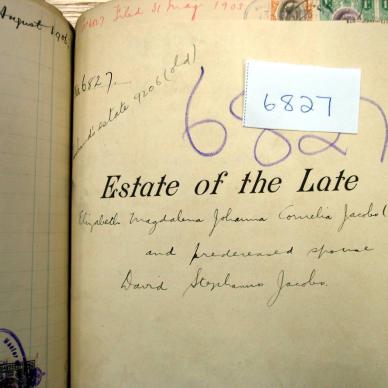 August 1906
6827 Filed 31 May 1905
6827
estate 9206 (old)
6827
6827
Estate of the Late
Elizabeth Magdalena Johanna Cornelia Jacobs (
and predeceased spouse
David Stephanus Jacobs.